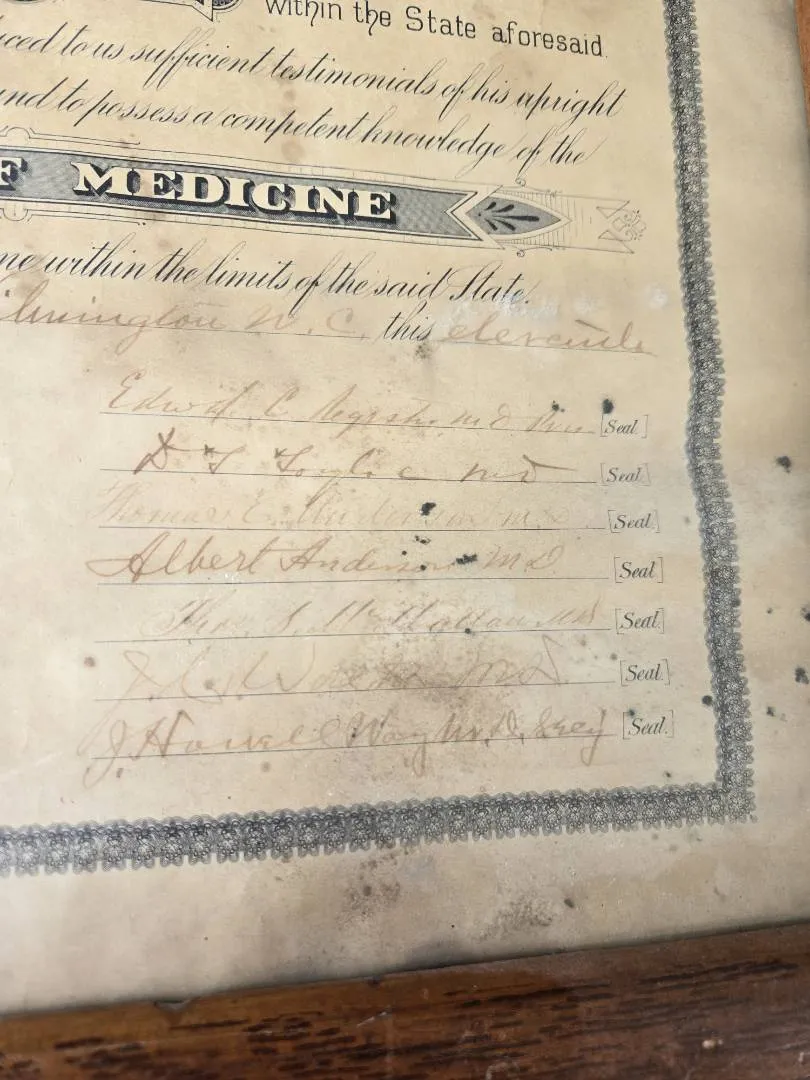 within the State aforesaid.
uced to us sufficient testimonials of his upright
und to possess a competent knowledge of the
F MEDICINE
ne within the limits of the said State.
lmington N. C. this eleventh
Edwd. C. Register M D Pres [Seal.]
D T M D [Seal.]
Thomas E. M.D. [Seal.]
Albert Anderson M D [Seal.]
Thos. S. M D [Seal.]
J M D [Seal.]
J. Howell Way M. D. Secy [Seal.]